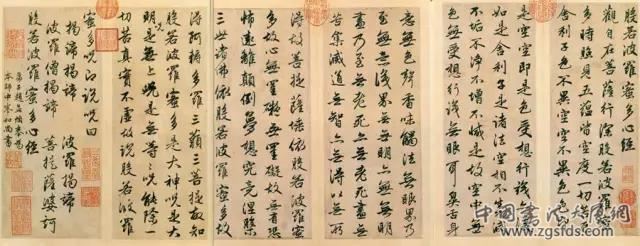 般若波羅蜜多心經
觀自在菩薩行深般若波羅蜜
多時照見五蘊皆空度一切苦厄
舍利子色不異空空不異色色即
是空空即是色受想行識亦復
如是舍利子是諸法空相不生不滅
不垢不淨不增不減是故空中無
色無受想行識無眼耳鼻舌身
意無色聲香味觸法無眼界乃
至無意識界無無明亦無無明
盡乃至無老死亦無老死盡無
苦集滅道無智亦無得以無所
得故菩提薩埵依般若波羅蜜
多故心無罣礙無罣礙故無有恐
怖遠離顛倒夢想究竟涅槃
三世諸佛依般若波羅蜜多故
得阿耨多羅三藐三菩提故知
般若波羅蜜多是大神咒是大
明咒是無上咒是無等等咒能除一
切苦真實不虛故說般若波羅
蜜多咒即說咒曰
揭諦揭諦 波羅揭諦
波羅僧揭諦 菩提薩婆訶
般若波羅蜜多心經
弟子趙孟頫奉為
本師中峯和尚書
中国书法展网
www.zgsfds.com